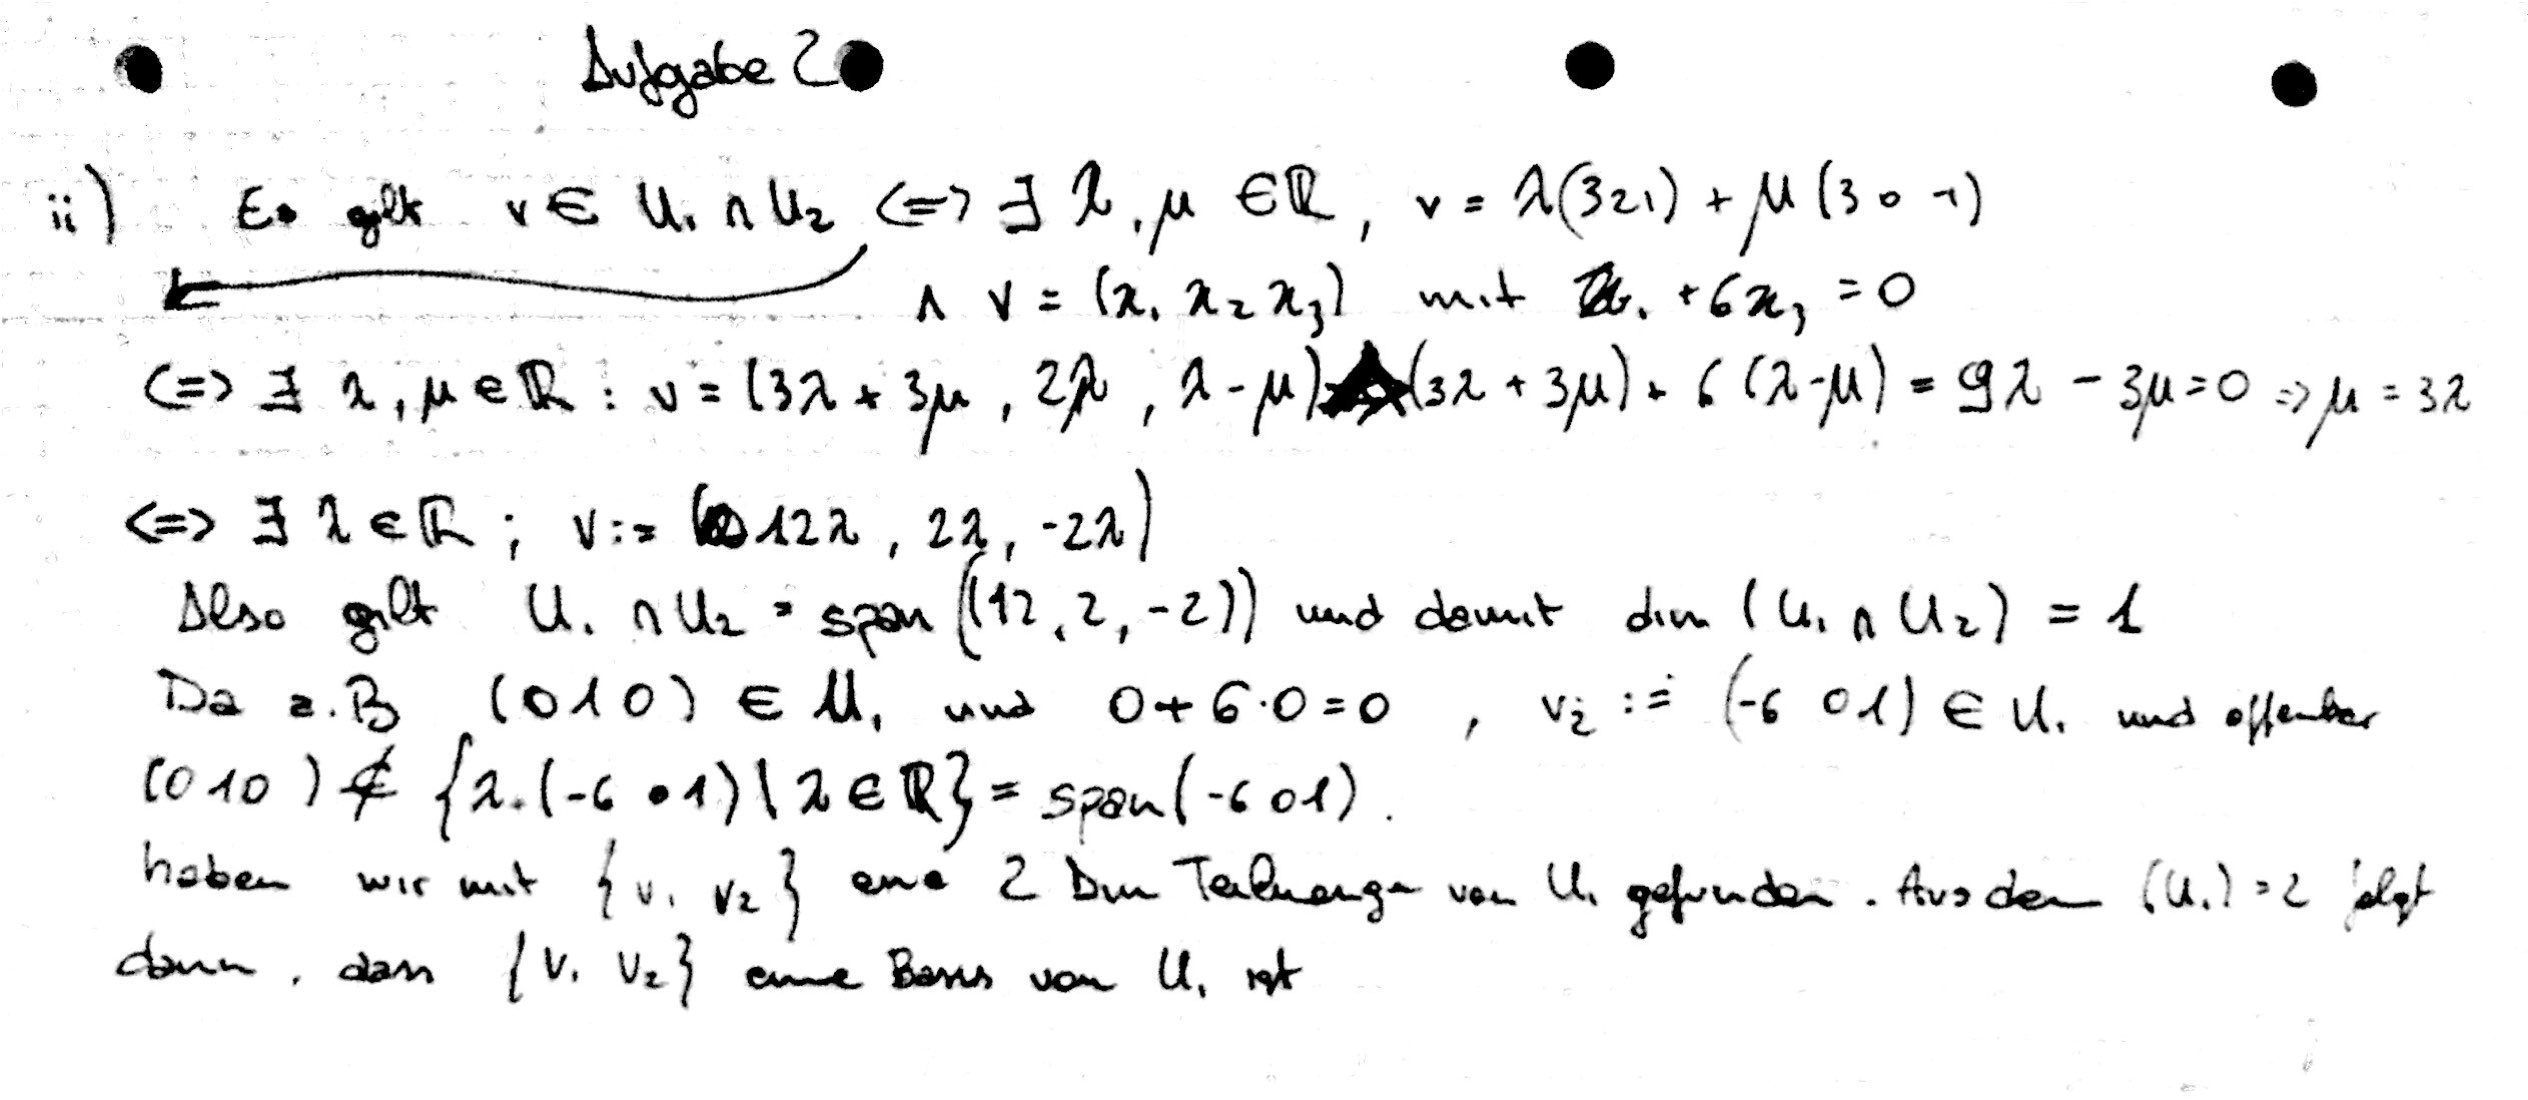 Aufgabe 2
ii) Es gilt v ∈ U₁ ∩ U₂ <=> ∃ λ, μ ∈ ℝ, v = λ(3 2 1) + μ(3 0 -1)
∧ v = (x₁ x₂ x₃) mit x₁ + 6x₃ = 0
<=> ∃ λ, μ ∈ ℝ : v = (3λ + 3μ, 2λ, λ - μ) (3λ + 3μ) + 6(λ-μ) = 9λ - 3μ = 0 => μ = 3λ
<=> ∃ λ ∈ ℝ ; v := (12λ, 2λ, -2λ)
Also gilt U₁ ∩ U₂ = span((12, 2, -2)) und damit dim (U₁ ∩ U₂) = 1
Da z.B (0 1 0) ∈ U₁ und 0 + 6·0 = 0, v₂ := (-6 0 1) ∈ U₁ und offenbar
(0 1 0) ∉ {λ·(-6 0 1) | λ ∈ ℝ} = span(-6 0 1).
haben wir mit {v₁ v₂} eine 2 Dim Teilmenge von U₁ gefunden. Aus dem (U₁) = 2 folgt
dann, dass {v₁ v₂} eine Basis von U₁ ist